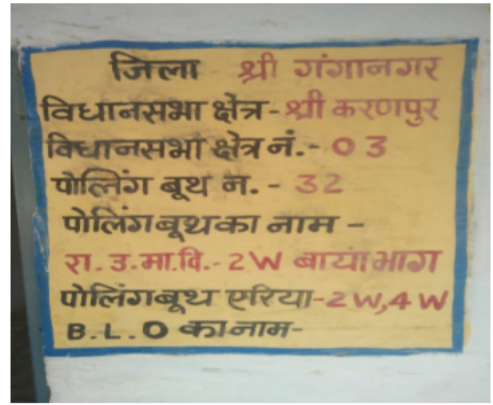 जिला श्री गंगानगर
विधानसभा क्षेत्र-श्री करणपुर
विधानसभा क्षेत्र नं.- 03
पोलिंग बूथ न. - 32
पोलिंग बूथ का नाम -
रा. उ.मा.वि.- 2W बायां भाग
पोलिंग बूथ एरिया-2W,4W
B.L.O का नाम-